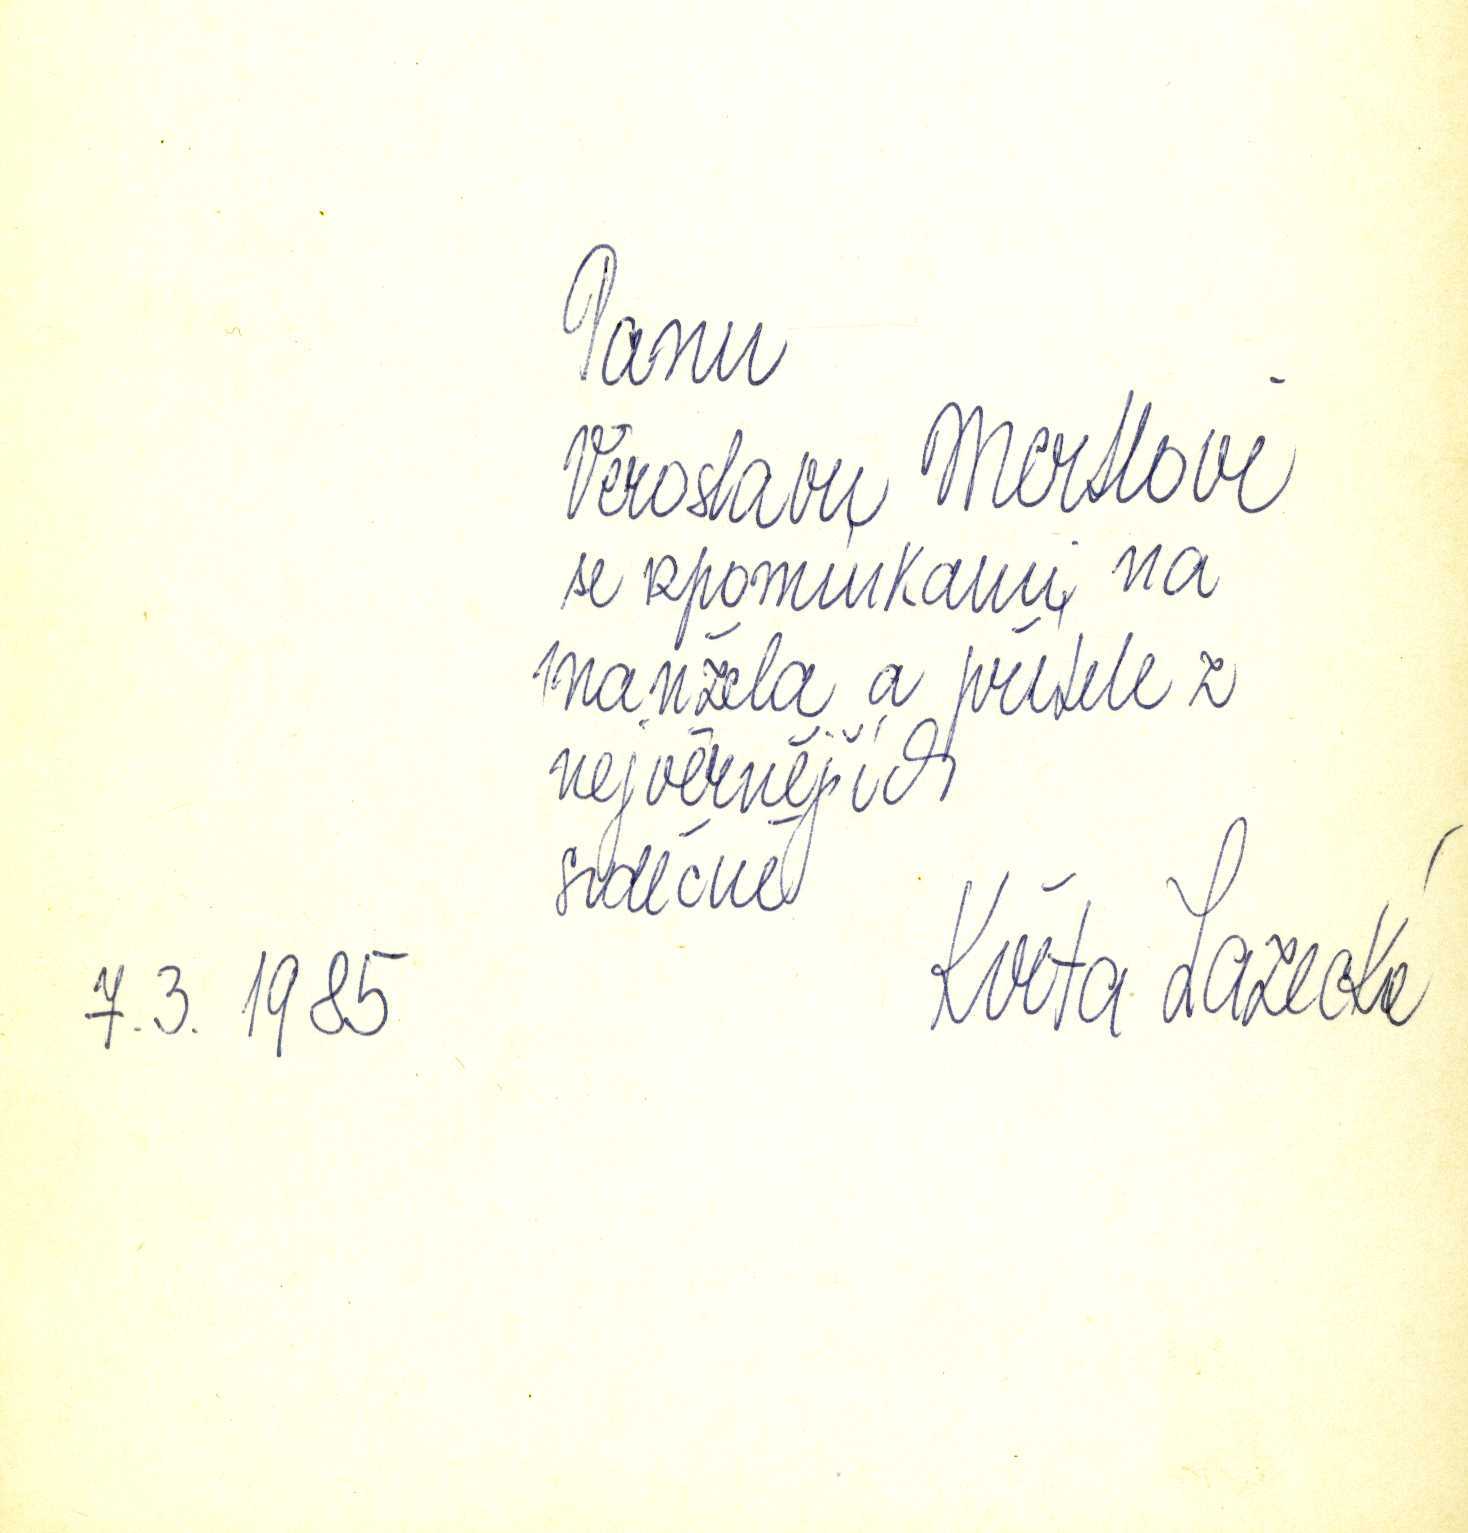 Panu
Věroslavu Mertlovi
se vzpomínkami na
manžela a přítele z
nejvěrnějších
srdečně
Květa Lazecká
7.3. 1985